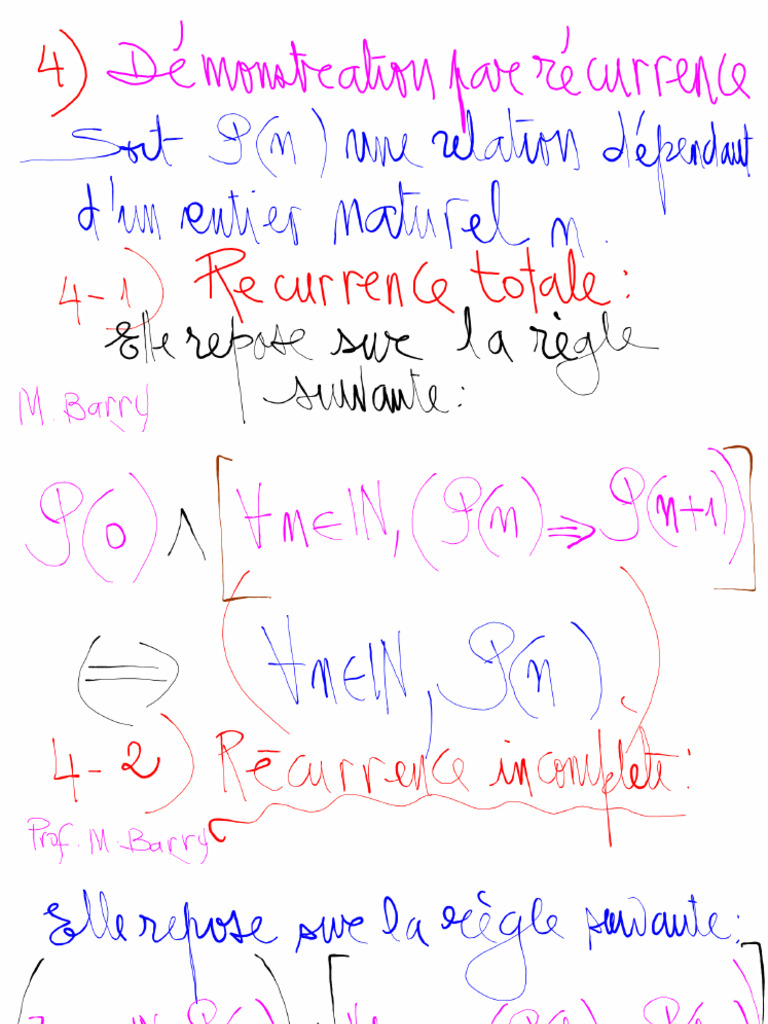 4) Démonstration par récurrence
Soit P(n) une relation dépendant
d'un entier naturel n.
4-1) Recurrence totale :
Elle repose sur la règle
suivante :
M. Barry
P(0) ∧ [∀n∈ℕ, (P(n) ⇒ P(n+1))]
(=) (∀n∈ℕ, P(n))
4-2) Récurrence incomplète :
Prof. M. Barry
Elle repose sur la règle suivante :